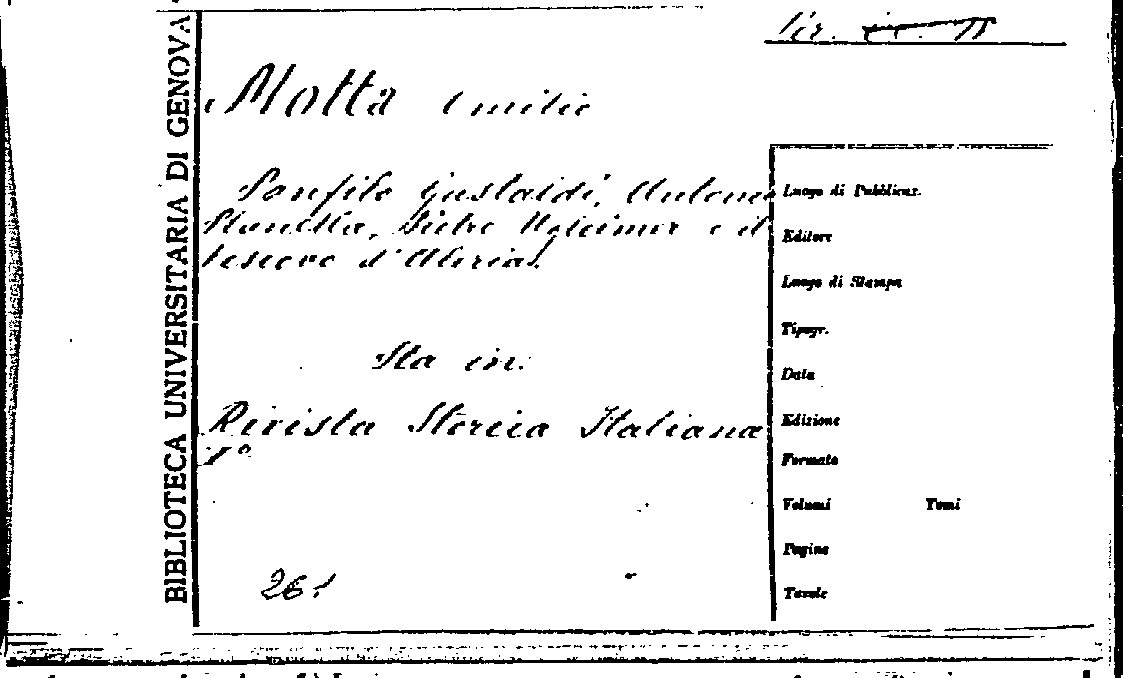 BIBLIOTECA UNIVERSITARIA DI GENOVA
Motta Emilio
Panfilo Castaldi, Antonio
Planella, Pietro Ugleimer e il
vescovo d'Aleria.
Sta in:
Rivista Storica Italiana
1°
261
Luogo di Pubblicaz.
Editore
Luogo di Stampa
Tipogr.
Data
Edizione
Formato
Volumi Tomi
Pagine
Tavole